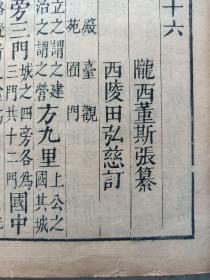 十六
隴西董斯張纂
西陵田弘慈訂
殿 臺 觀
苑 囿 門
立之謂之建
治之謂之營
方九里
上公之
國其城
旁三門
城之四旁各爲
三門共十二門
國中